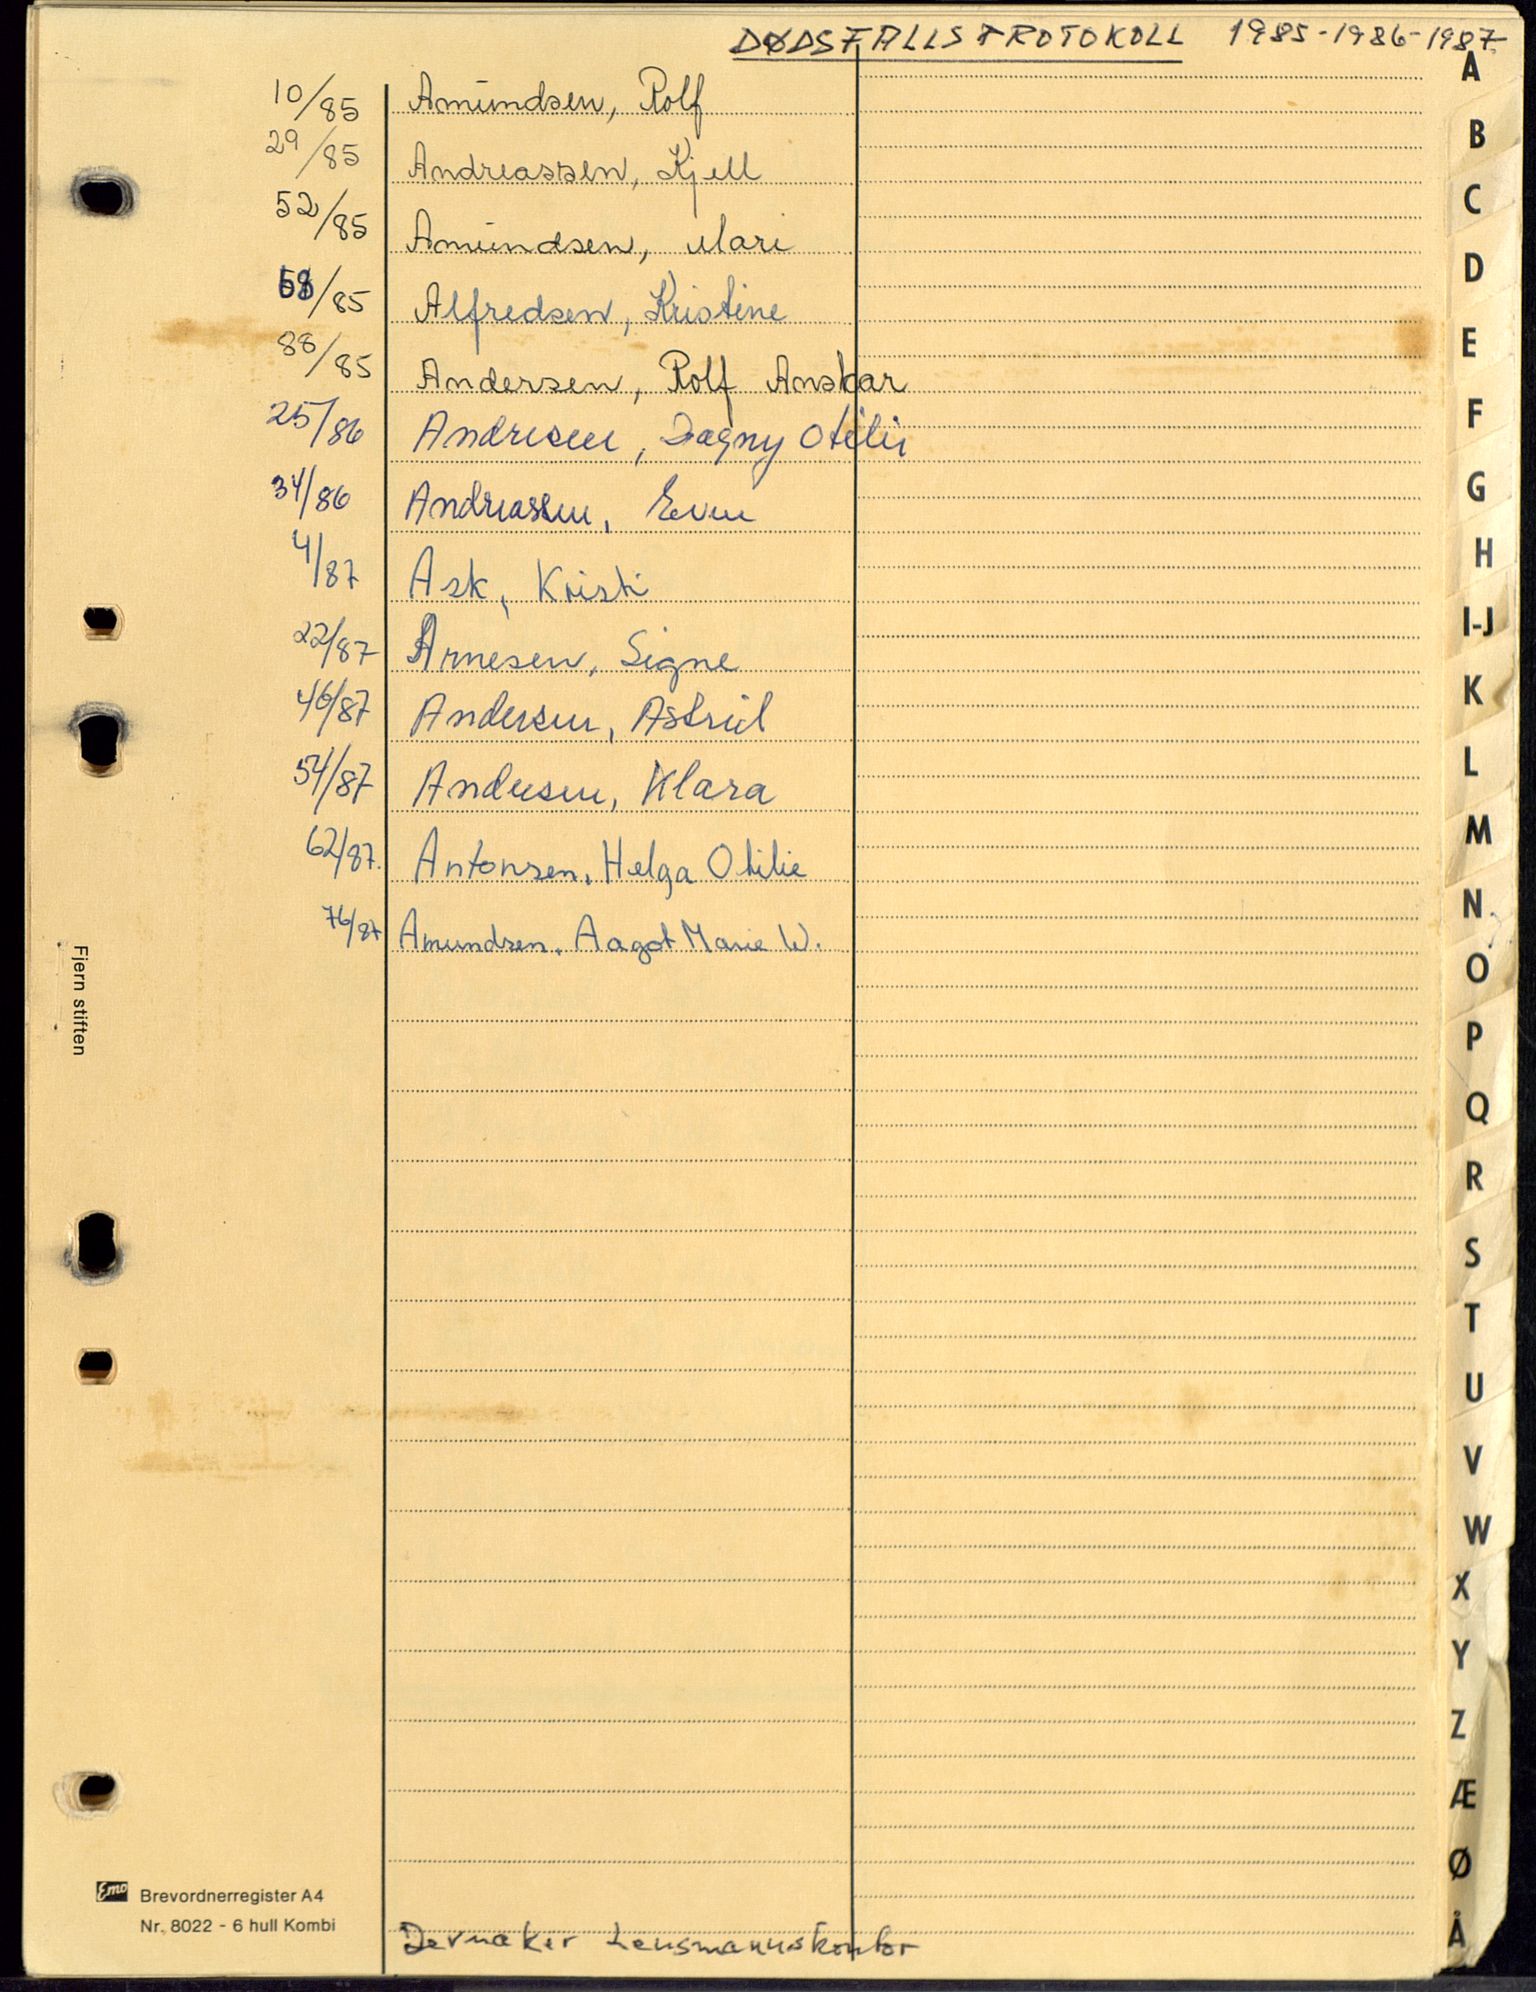 DØDSFALLSPROTOKOLL 1985-1986-1987
10/85 Amundsen, Rolf
29/85 Andreassen, Kjell
52/85 Amundsen, Mari
/85 Alfredsen, Kristine
88/85 Andersen, Rolf Anskar
25/86 Andresen, Dagny Otilie
34/86 Andreassen, Even
4/87 Ask, Kristi
22/87 Arnesen, Signe
46/87 Andersen, Astrid
54/87 Andersen, Klara
62/87. Antonsen, Helga Otilie
76/87 Amundsen, Aagot Marie W.
Jevnaker Lensmannskontor
Fjern stiften
Emo
Brevordnerregister A4
Nr. 8022 - 6 hull Kombi
A
B
C
D
E
F
G
H
I-J
K
L
M
N
O
P
Q
R
S
T
U
V
W
X
Y
Z
Æ
Ø
Å